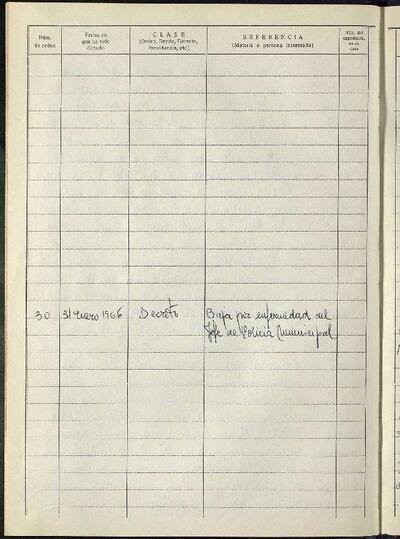 Núm. de orden
Fecha en que ha sido dictado
CLASE
(Orden, Bando, Decreto, Providencia, etc.)
REFERENCIA
(Materia o persona interesada)
Núm. del expediente, en su caso
30 31 Enero 1966 Decreto Baja por enfermedad del
Jefe de Policía Municipal